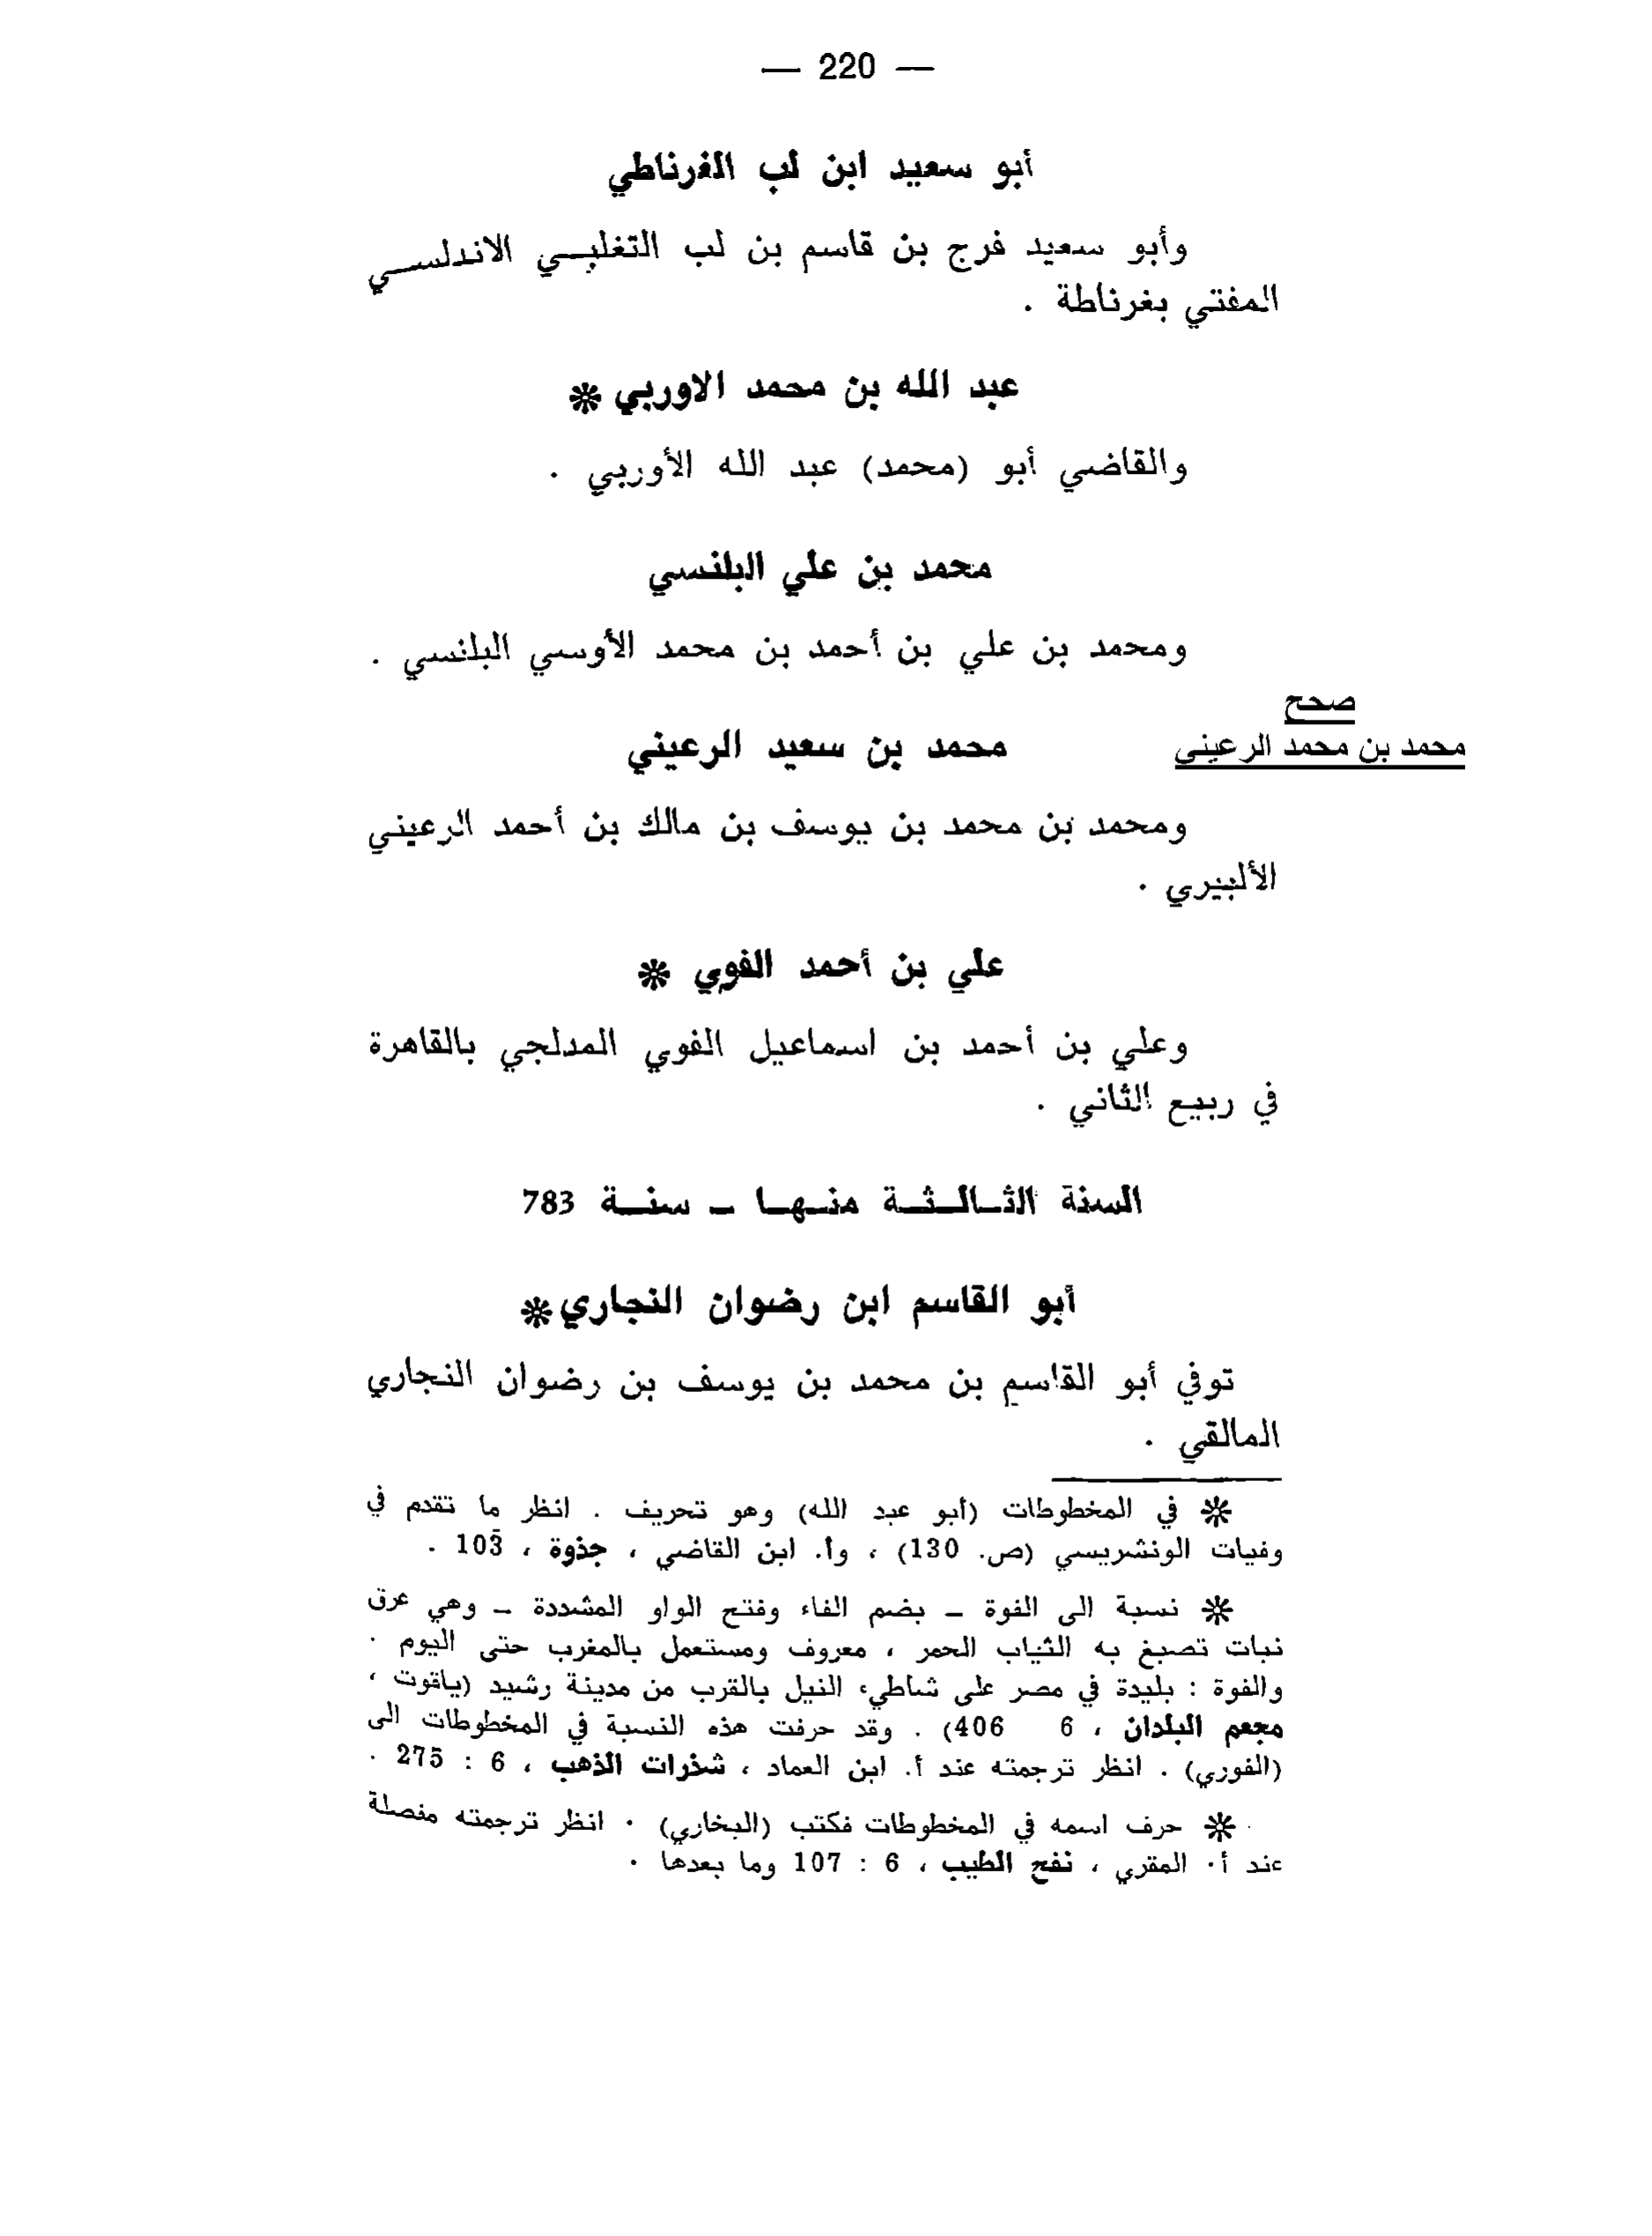 — 220 —
أبو سعيد ابن لب الغرناطي
وأبو سعيد فرج بن قاسم بن لب التغلبي الاندلسي
المفتي بغرناطة .
عبد الله بن محمد الاوربي *
والقاضي أبو (محمد) عبد الله الأوربي .
محمد بن علي البلنسي
ومحمد بن علي بن أحمد بن محمد الأوسي البلنسي .
صحح
محمد بن محمد الرعيني
محمد بن سعيد الرعيني
ومحمد بن محمد بن يوسف بن مالك بن أحمد الرعيني
الألبيري .
علي بن أحمد الفوي *
وعلي بن أحمد بن اسماعيل الفوي المدلجي بالقاهرة
في ربيع الثاني .
السنة الثالثة منها – سنة 783
أبو القاسم ابن رضوان النجاري *
توفي أبو القاسم بن محمد بن يوسف بن رضوان النجاري
المالقي .
* في المخطوطات (أبو عبد الله) وهو تحريف . انظر ما تقدم في
وفيات الونشريسي (ص. 130) ، وأ. ابن القاضي ، جذوة ، 103 .
* نسبة الى الفوة – بضم الفاء وفتح الواو المشددة – وهي عرق
نبات تصبغ به الثياب الحمر ، معروف ومستعمل بالمغرب حتى اليوم .
والفوة : بليدة في مصر على شاطيء النيل بالقرب من مدينة رشيد (ياقوت ،
مجعم البلدان ، 6 406) . وقد حرفت هذه النسبة في المخطوطات الى
(الفوري) . انظر ترجمته عند أ. ابن العماد ، شذرات الذهب ، 6 : 275 .
* حرف اسمه في المخطوطات فكتب (البخاري) . انظر ترجمته مفصلة
عند أ. المقري ، نفح الطيب ، 6 : 107 وما بعدها .